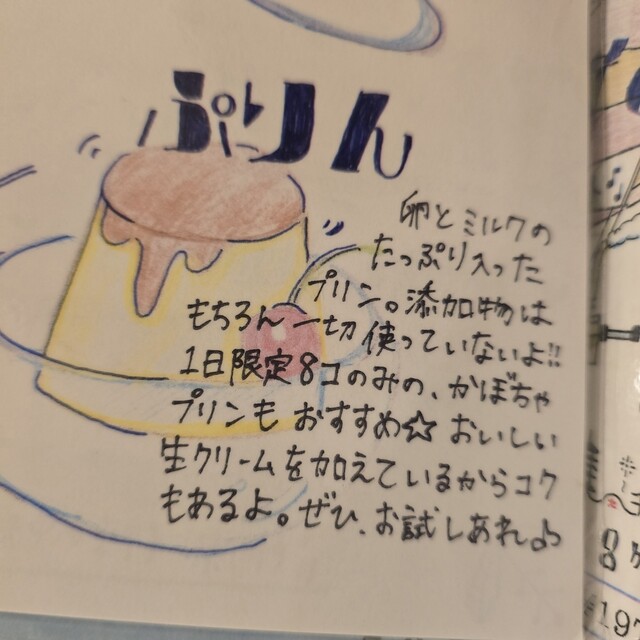 ぷりん
卵とミルクの
たっぷり入った
プリン。添加物は
もちろん一切使っていないよ!!
1日限定8コのみの、かぼちゃ
プリンもおすすめ☆おいしい
生クリームを加えているからコク
もあるよ。ぜひ、お試しあれ♪
8ケ
19